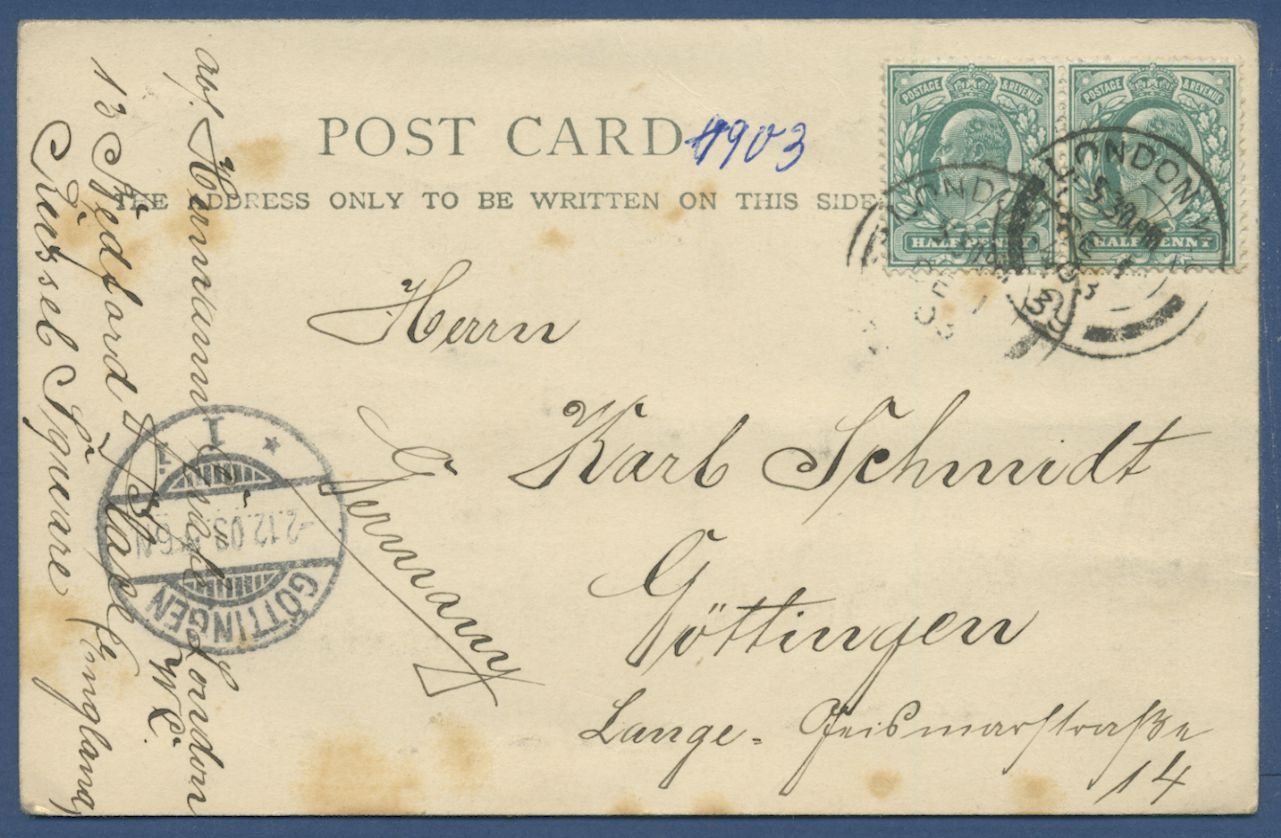 POST CARD
1903
THE ADDRESS ONLY TO BE WRITTEN ON THIS SIDE
POSTAGE & REVENUE
HALF PENNY
POSTAGE & REVENUE
HALF PENNY
LONDON
LONDON W
5.30 PM
DE 1
03
Herrn
Karl Schmidt
Göttingen
Lange-Geismarstraße
14
Germany
Hermann London
13 Bedford Place W.C.
Russel Square England
GÖTTINGEN
-2.12.03. 5-6N
1